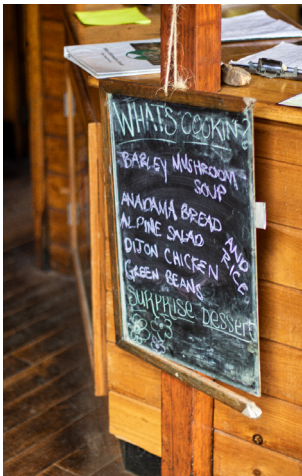 WHAT'S COOKIN'
BARLEY MUSHROOM
SOUP
ANADAMA BREAD
ALPINE SALAD
DIJON CHICKEN AND RICE
GREEN BEANS
SURPRISE DESSERT